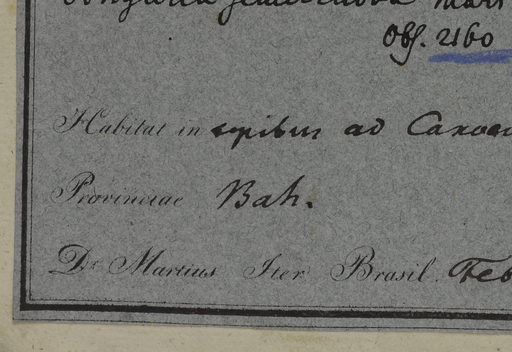 Obs. 2160
Habitat in sepibus ad
Provinciae Bah.
Dr. Martius Iter Brasil. Feb